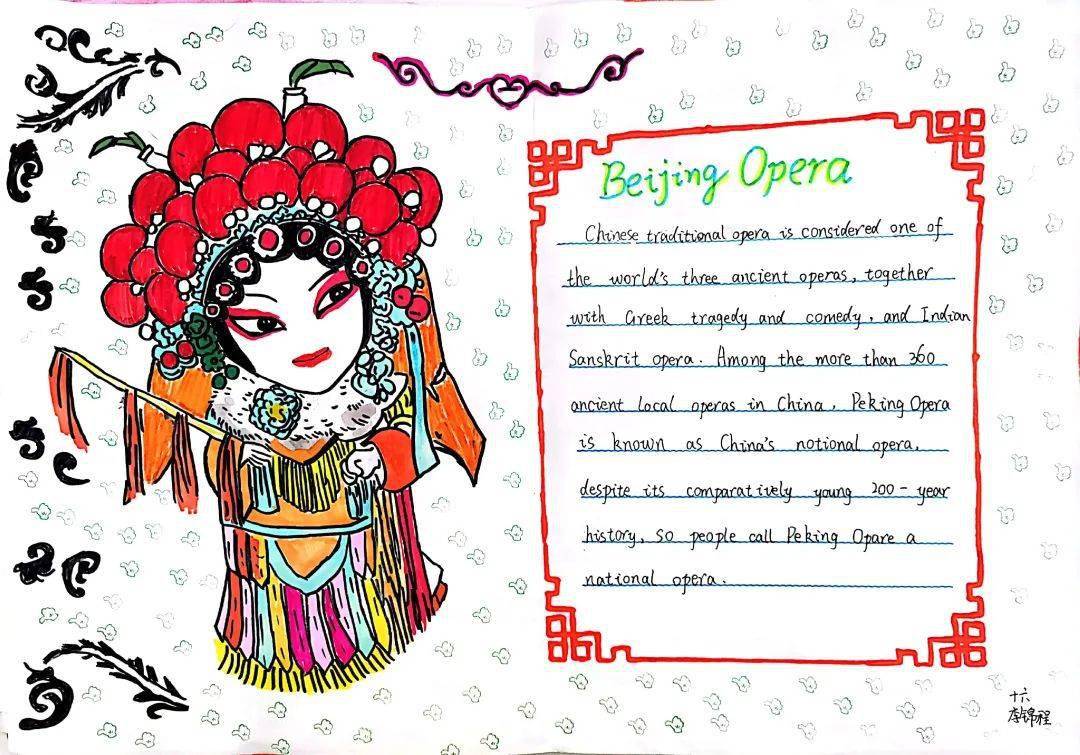 Beijing Opera
Chinese traditional opera is considered one of
the world's three ancient operas, together
with Greek tragedy and comedy, and Indian
Sanskrit opera. Among the more than 360
ancient local operas in China, Peking Opera
is known as China's notional opera,
despite its comparatively young 200-year
history, so people call Peking Opare a
national opera.
十六
李锦程